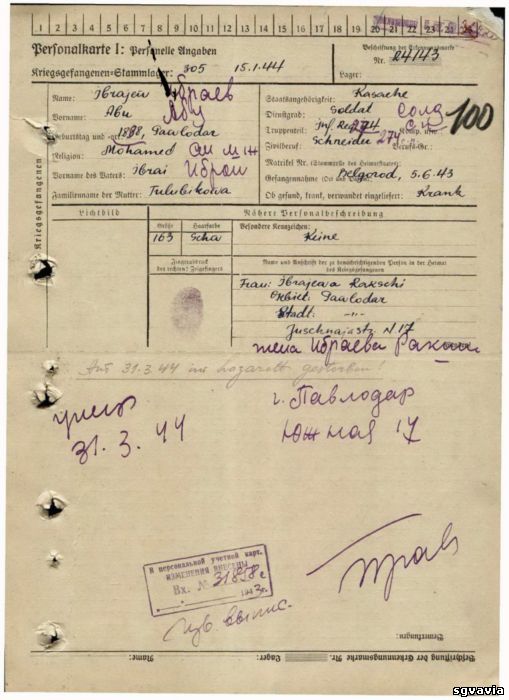 1 2 3 4 5 6 7 8 9 10 11 12 13 14 15 16 17 18 19 20 21 22 23 24 25
Personalkarte I: Personelle Angaben
Kriegsgefangenen-Stammlager: 305 15.1.44
Beschriftung der Erkennungsmarke
Nr. 24143
Lager:
Name: Ibrajew Ибраев
Vorname: Abu Абу
Geburtstag und -ort: 1898, Pawlodar
Religion: Mohamed
Vorname des Vaters: Ibrai Ибрай
Familienname der Mutter: Tulubikowa
Staatsangehörigkeit: Kasache
Dienstgrad: Soldat солд
Truppenteil: Inf. Reg. 274 Komp. usw.
Zivilberuf: Schneider 274 Berufs-Gr.:
Matrikel Nr. (Stammrolle des Heimatstaates):
Gefangennahme (Ort und Datum): Belgorod, 5.6.43
Ob gesund, krank, verwundet eingeliefert: Krank
100
Kriegsgefangenen
Lichtbild
Nähere Personalbeschreibung
Größe Haarfarbe Besondere Kennzeichen:
163 Schw Keine
Fingerabdruck
des rechten Zeigefingers
Name und Anschrift der zu benachrichtigenden Person in der Heimat
des Kriegsgefangenen
Frau: Ibrajewa Rakschi
Obiet: Pawlodar
Stadt: -"-
Juschnajastr N 17
жена Ибраева
Am 31.3.44 im Lazarett gestorben!
умер
31.3.44
г. Павлодар
Южная 17
В персональной учетной карт.
ИЗМЕНЕНИЯ ВНЕСЕНЫ
Вх. № 31858с
Bemerkungen:
Beschriftung der Erkennungsmarke Nr. Lager: Name:
sgvavia